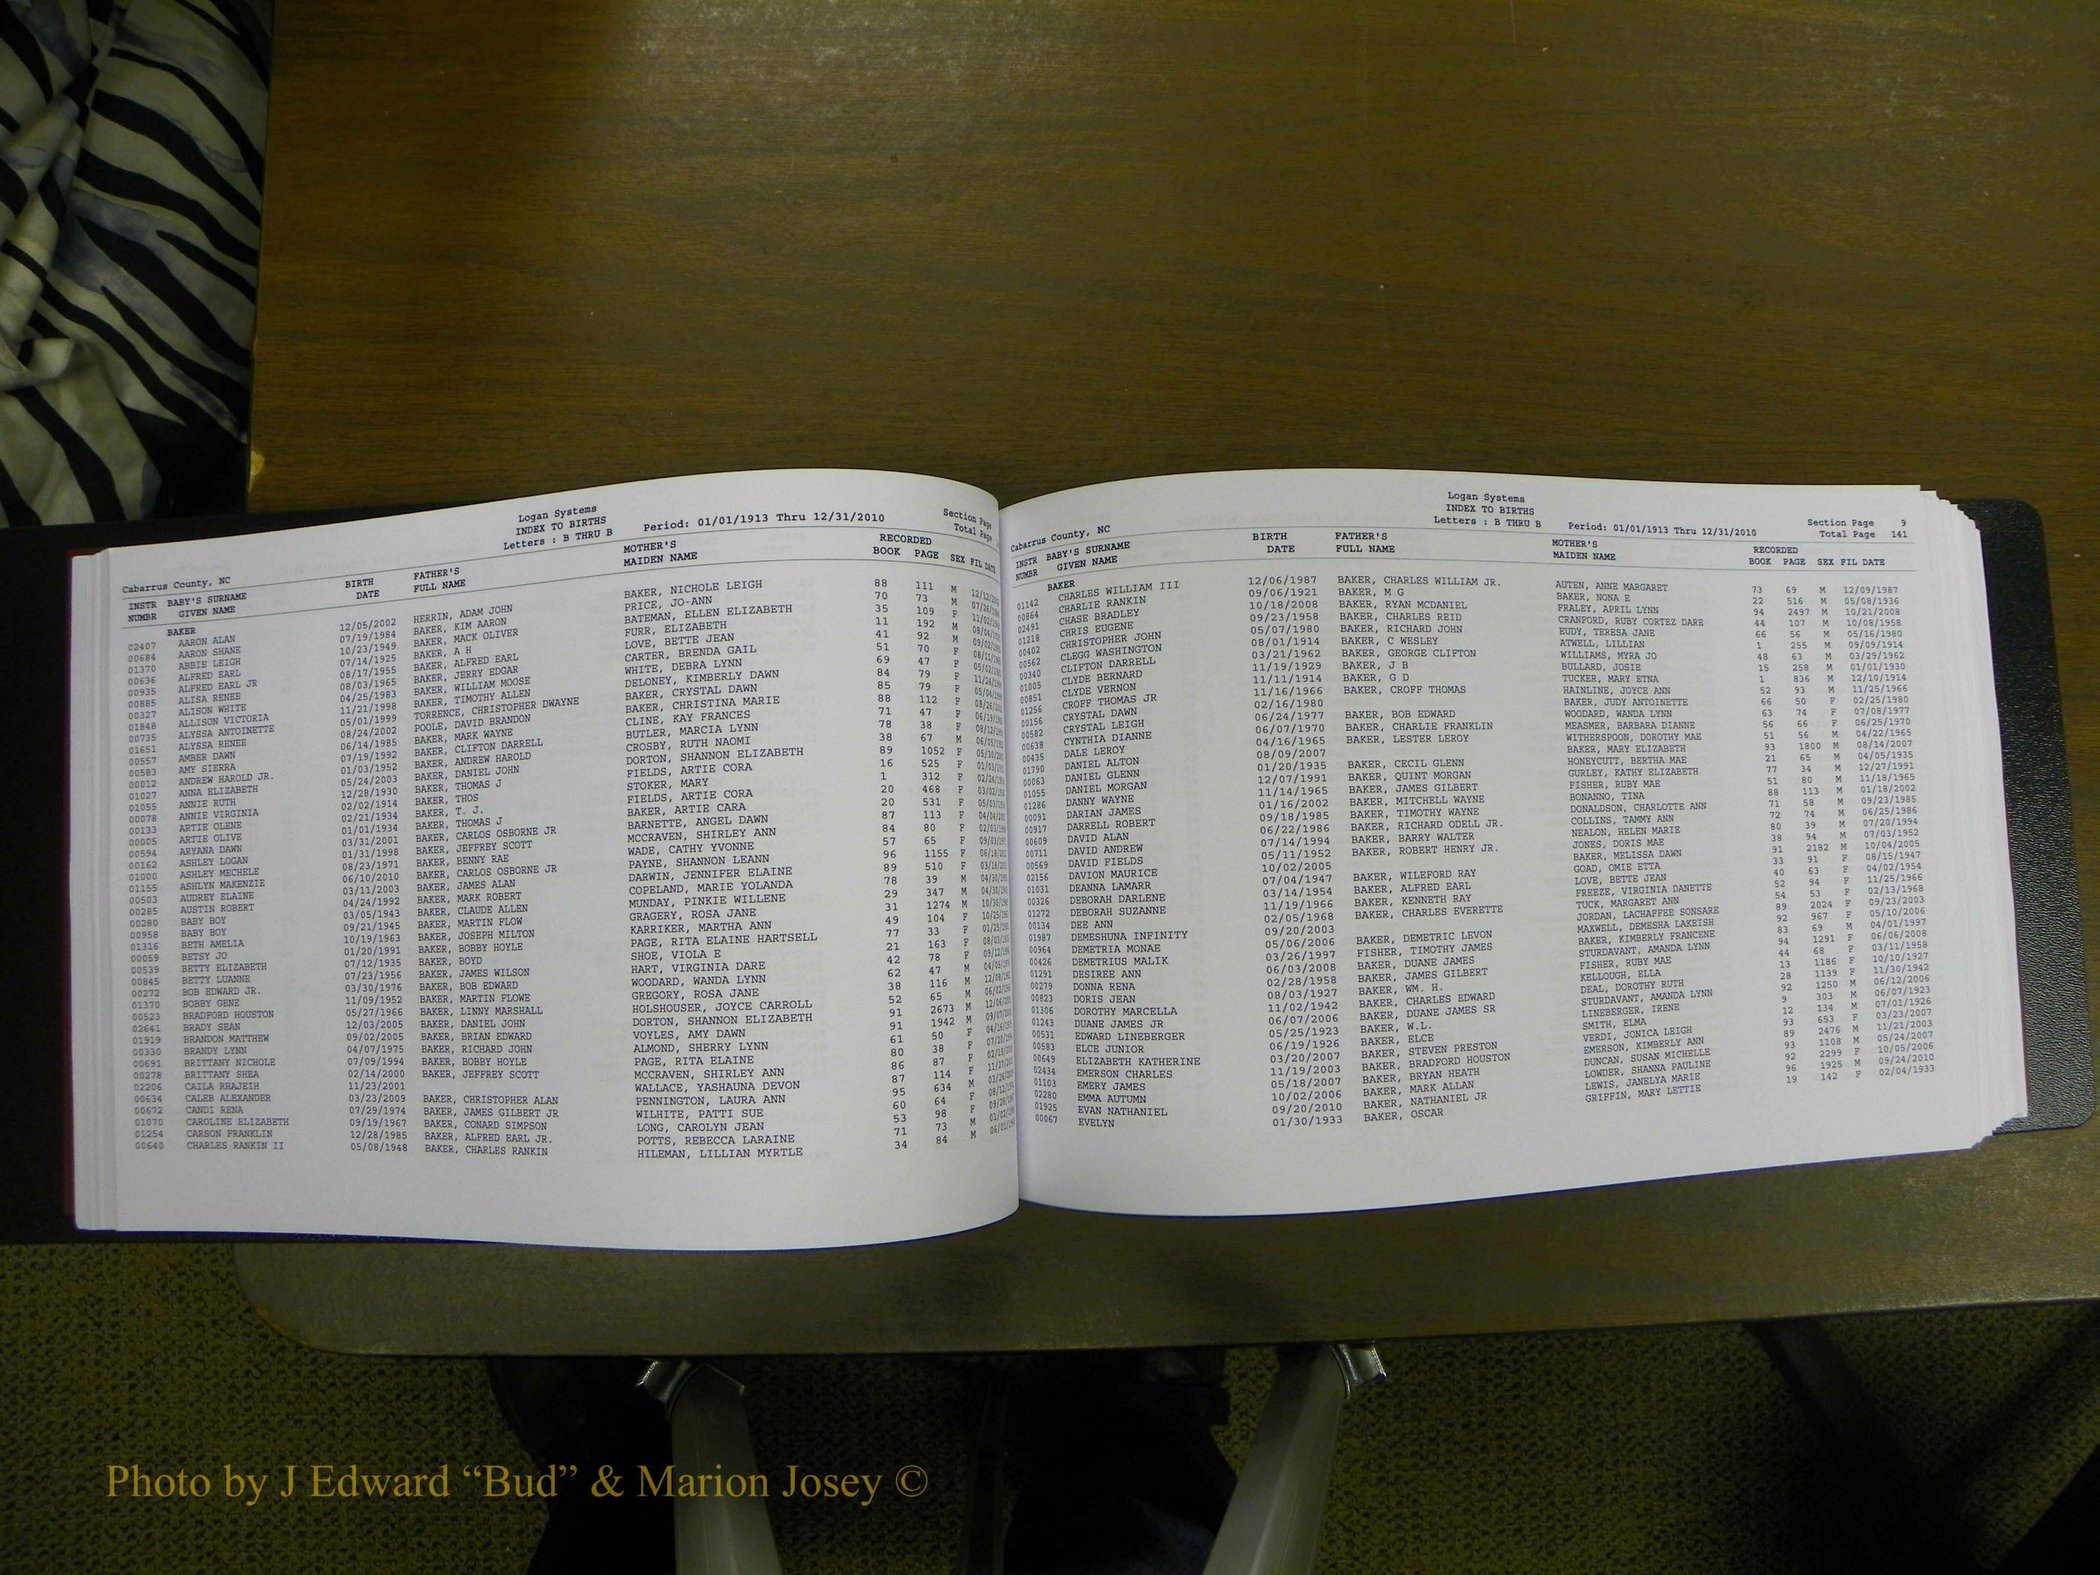 Logan Systems
INDEX TO BIRTHS
Cabarrus County, NC Letters : B THRU B Period: 01/01/1913 Thru 12/31/2010 Section Page
Total Page
INSTR BABY'S SURNAME BIRTH FATHER'S MOTHER'S RECORDED
NUMBR GIVEN NAME DATE FULL NAME MAIDEN NAME BOOK PAGE SEX FIL DATE
BAKER
02407 AARON ALAN 12/05/2002 HERRIN, ADAM JOHN BAKER, NICHOLE LEIGH 88 111 M
00684 AARON SHANE 07/19/1984 BAKER, KIM AARON PRICE, JO-ANN 70 73 M
01370 ABBIE LEIGH 10/23/1949 BAKER, MACK OLIVER BATEMAN, ELLEN ELIZABETH 35 109 F
00636 ALFRED EARL 07/14/1925 BAKER, A H FURR, ELIZABETH 11 192 M
00935 ALFRED EARL JR 08/17/1955 BAKER, ALFRED EARL LOVE, BETTE JEAN 41 92 M
00885 ALISA RENEE 08/03/1965 BAKER, JERRY EDGAR CARTER, BRENDA GAIL 51 70 F
00327 ALISON WHITE 04/25/1983 BAKER, WILLIAM MOOSE WHITE, DEBRA LYNN 69 47 F
01848 ALLISON VICTORIA 11/21/1998 BAKER, TIMOTHY ALLEN DELONEY, KIMBERLY DAWN 84 79 F
00735 ALYSSA ANTOINETTE 05/01/1999 TORRENCE, CHRISTOPHER DWAYNE BAKER, CRYSTAL DAWN 85 79 F
01651 ALYSSA RENEE 08/24/2002 POOLE, DAVID BRANDON BAKER, CHRISTINA MARIE 88 112 F
00557 AMBER DAWN 06/14/1985 BAKER, MARK WAYNE CLINE, KAY FRANCES 71 47 F
00583 AMY SIERRA 07/19/1992 BAKER, CLIFTON DARRELL BUTLER, MARCIA LYNN 78 38 F
00012 ANDREW HAROLD JR. 01/03/1952 BAKER, ANDREW HAROLD CROSBY, RUTH NAOMI 38 67 M
01027 ANNA ELIZABETH 05/24/2003 BAKER, DANIEL JOHN DORTON, SHANNON ELIZABETH 89 1052 F
01055 ANNIE RUTH 12/28/1930 BAKER, THOMAS J FIELDS, ARTIE CORA 16 525 F
00078 ANNIE VIRGINIA 02/02/1914 BAKER, THOS STOKER, MARY 1 312 F
00133 ARTIE OLENE 02/21/1934 BAKER, T. J. FIELDS, ARTIE CORA 20 468 F
00005 ARTIE OLIVE 01/01/1934 BAKER, THOMAS J BAKER, ARTIE CARA 20 531 F
00594 ARYANA DAWN 03/31/2001 BAKER, CARLOS OSBORNE JR BARNETTE, ANGEL DAWN 87 113 F
00162 ASHLEY LOGAN 01/31/1998 BAKER, JEFFREY SCOTT MCCRAVEN, SHIRLEY ANN 84 80 F
01000 ASHLEY MECHELE 08/23/1971 BAKER, BENNY RAE WADE, CATHY YVONNE 57 65 F
01155 ASHLYN MAKENZIE 06/10/2010 BAKER, CARLOS OSBORNE JR PAYNE, SHANNON LEANN 96 1155 F
00503 AUDREY ELAINE 03/11/2003 BAKER, JAMES ALAN DARWIN, JENNIFER ELAINE 89 510 F
00285 AUSTIN ROBERT 04/24/1992 BAKER, MARK ROBERT COPELAND, MARIE YOLANDA 78 39 M
00280 BABY BOY 03/05/1943 BAKER, CLAUDE ALLEN MUNDAY, PINKIE WILLENE 29 347 M
00958 BABY BOY 09/21/1945 BAKER, MARTIN FLOW GRAGERY, ROSA JANE 31 1274 M
01316 BETH AMELIA 10/19/1963 BAKER, JOSEPH MILTON KARRIKER, MARTHA ANN 49 104 F
00059 BETSY JO 01/20/1991 BAKER, BOBBY HOYLE PAGE, RITA ELAINE HARTSELL 77 33 F
00539 BETTY ELIZABETH 07/12/1935 BAKER, BOYD SHOE, VIOLA E 21 163 F
00845 BETTY LUANNE 07/23/1956 BAKER, JAMES WILSON HART, VIRGINIA DARE 42 78 F
00272 BOB EDWARD JR. 03/30/1976 BAKER, BOB EDWARD WOODARD, WANDA LYNN 62 47 M
01370 BOBBY GENE 11/09/1952 BAKER, MARTIN FLOWE GREGORY, ROSA JANE 38 116 M
00523 BRADFORD HOUSTON 05/27/1966 BAKER, LINNY MARSHALL HOLSHOUSER, JOYCE CARROLL 52 65 M
02641 BRADY SEAN 12/03/2005 BAKER, DANIEL JOHN DORTON, SHANNON ELIZABETH 91 2673 M
01919 BRANDON MATTHEW 09/02/2005 BAKER, BRIAN EDWARD VOYLES, AMY DAWN 91 1942 M
00330 BRANDY LYNN 04/07/1975 BAKER, RICHARD JOHN ALMOND, SHERRY LYNN 61 50 F
00691 BRITTANY NICHOLE 07/09/1994 BAKER, BOBBY HOYLE PAGE, RITA ELAINE 80 38 F
00278 BRITTANY SHEA 02/14/2000 BAKER, JEFFREY SCOTT MCCRAVEN, SHIRLEY ANN 86 87 F
02206 CAILA RHAJEIH 11/23/2001 WALLACE, YASHAUNA DEVON 87 114 F
00634 CALEB ALEXANDER 03/23/2009 BAKER, CHRISTOPHER ALAN PENNINGTON, LAURA ANN 95 634 M
00672 CANDI RENA 07/29/1974 BAKER, JAMES GILBERT JR WILHITE, PATTI SUE 60 64 F
01070 CAROLINE ELIZABETH 09/19/1967 BAKER, CONARD SIMPSON LONG, CAROLYN JEAN 53 98 F
01254 CARSON FRANKLIN 12/28/1985 BAKER, ALFRED EARL JR. POTTS, REBECCA LARAINE 71 73 M
00640 CHARLES RANKIN II 05/08/1948 BAKER, CHARLES RANKIN HILEMAN, LILLIAN MYRTLE 34 84 M
Logan Systems
INDEX TO BIRTHS
Cabarrus County, NC Letters : B THRU B Period: 01/01/1913 Thru 12/31/2010 Section Page 9
Total Page 141
INSTR BABY'S SURNAME BIRTH FATHER'S MOTHER'S RECORDED
NUMBR GIVEN NAME DATE FULL NAME MAIDEN NAME BOOK PAGE SEX FIL DATE
BAKER
01142 CHARLES WILLIAM III 12/06/1987 BAKER, CHARLES WILLIAM JR. AUTEN, ANNE MARGARET 73 69 M 12/09/1987
00864 CHARLIE RANKIN 09/06/1921 BAKER, M G BAKER, NONA E 22 516 M 05/08/1936
02491 CHASE BRADLEY 10/18/2008 BAKER, RYAN MCDANIEL FRALEY, APRIL LYNN 94 2497 M 10/21/2008
01218 CHRIS EUGENE 09/23/1958 BAKER, CHARLES REID CRANFORD, RUBY CORTEZ DARE 44 107 M 10/08/1958
00402 CHRISTOPHER JOHN 05/07/1980 BAKER, RICHARD JOHN EUDY, TERESA JANE 66 56 M 05/16/1980
00562 CLEGG WASHINGTON 08/01/1914 BAKER, C WESLEY ATWELL, LILLIAN 1 255 M 09/09/1914
00340 CLIFTON DARRELL 03/21/1962 BAKER, GEORGE CLIFTON WILLIAMS, MYRA JO 48 63 M 03/29/1962
01005 CLYDE BERNARD 11/19/1929 BAKER, J B BULLARD, JOSIE 15 258 M 01/01/1930
00851 CLYDE VERNON 11/11/1914 BAKER, G D TUCKER, MARY ETNA 1 836 M 12/10/1914
01256 CROFF THOMAS JR 11/16/1966 BAKER, CROFF THOMAS HAINLINE, JOYCE ANN 52 93 M 11/25/1966
00156 CRYSTAL DAWN 02/16/1980 BAKER, JUDY ANTOINETTE 66 50 F 02/25/1980
00582 CRYSTAL LEIGH 06/24/1977 BAKER, BOB EDWARD WOODARD, WANDA LYNN 63 74 F 07/08/1977
00638 CYNTHIA DIANNE 06/07/1970 BAKER, CHARLIE FRANKLIN MEASMER, BARBARA DIANNE 56 66 F 06/25/1970
00435 DALE LEROY 04/16/1965 BAKER, LESTER LEROY WITHERSPOON, DOROTHY MAE 51 56 M 04/22/1965
01790 DANIEL ALTON 08/09/2007 BAKER, MARY ELIZABETH 93 1800 M 08/14/2007
00063 DANIEL GLENN 01/20/1935 BAKER, CECIL GLENN HONEYCUTT, BERTHA MAE 21 65 M 04/05/1935
01055 DANIEL MORGAN 12/07/1991 BAKER, QUINT MORGAN GURLEY, KATHY ELIZABETH 77 34 M 12/27/1991
01286 DANNY WAYNE 11/14/1965 BAKER, JAMES GILBERT FISHER, RUBY MAE 51 80 M 11/18/1965
00091 DARIAN JAMES 01/16/2002 BAKER, MITCHELL WAYNE BONANNO, TINA 88 113 M 01/18/2002
00917 DARRELL ROBERT 09/18/1985 BAKER, TIMOTHY WAYNE DONALDSON, CHARLOTTE ANN 71 58 M 09/23/1985
00609 DAVID ALAN 06/22/1986 BAKER, RICHARD ODELL JR. COLLINS, TAMMY ANN 72 74 M 06/25/1986
00711 DAVID ANDREW 07/14/1994 BAKER, BARRY WALTER NEALON, HELEN MARIE 80 39 M 07/20/1994
00569 DAVID FIELDS 05/11/1952 BAKER, ROBERT HENRY JR. JONES, DORIS MAE 38 94 M 07/03/1952
02156 DAVION MAURICE 10/02/2005 BAKER, MELISSA DAWN 91 2182 M 10/04/2005
01031 DEANNA LAMARR 07/04/1947 BAKER, WILEFORD RAY GOAD, OMIE ETTA 33 91 F 08/15/1947
00326 DEBORAH DARLENE 03/14/1954 BAKER, ALFRED EARL LOVE, BETTE JEAN 40 63 F 04/02/1954
01272 DEBORAH SUZANNE 11/19/1966 BAKER, KENNETH RAY FREEZE, VIRGINIA DANETTE 52 94 F 11/25/1966
00134 DEE ANN 02/05/1968 BAKER, CHARLES EVERETTE TUCK, MARGARET ANN 54 53 F 02/13/1968
01987 DEMESHUNA INFINITY 09/20/2003 JORDAN, LACHAFFEE SONSARE 89 2024 F 09/23/2003
00964 DEMETRIA MONAE 05/06/2006 BAKER, DEMETRIC LEVON MAXWELL, DEMESHA LAKEISH 92 967 F 05/10/2006
00426 DEMETRIUS MALIK 03/26/1997 FISHER, TIMOTHY JAMES BAKER, KIMBERLY FRANCENE 83 69 M 04/01/1997
01291 DESIREE ANN 06/03/2008 BAKER, DUANE JAMES STURDAVANT, AMANDA LYNN 94 1291 F 06/06/2008
00279 DONNA RENA 02/28/1958 BAKER, JAMES GILBERT FISHER, RUBY MAE 44 68 F 03/11/1958
00823 DORIS JEAN 08/03/1927 BAKER, WM. H. KELLOUGH, ELLA 13 1186 F 10/10/1927
01306 DOROTHY MARCELLA 11/02/1942 BAKER, CHARLES EDWARD DEAL, DOROTHY RUTH 28 1139 F 11/30/1942
01243 DUANE JAMES JR 06/07/2006 BAKER, DUANE JAMES SR STURDAVANT, AMANDA LYNN 92 1250 M 06/12/2006
00531 EDWARD LINEBERGER 05/25/1923 BAKER, W.L. LINEBERGER, IRENE 9 303 M 06/07/1923
00583 ELCE JUNIOR 06/19/1926 BAKER, ELCE SMITH, ELMA 12 134 M 07/01/1926
00649 ELIZABETH KATHERINE 03/20/2007 BAKER, STEVEN PRESTON VERDI, JONICA LEIGH 93 653 F 03/23/2007
02434 EMERSON CHARLES 11/19/2003 BAKER, BRADFORD HOUSTON EMERSON, KIMBERLY ANN 89 2476 M 11/21/2003
01103 EMERY JAMES 05/18/2007 BAKER, BRYAN HEATH DUNCAN, SUSAN MICHELLE 93 1108 M 05/24/2007
02280 EMMA AUTUMN 10/02/2006 BAKER, MARK ALLAN LOWDER, SHANNA PAULINE 92 2299 F 10/05/2006
01925 EVAN NATHANIEL 09/20/2010 BAKER, NATHANIEL JR LEWIS, JANELYA MARIE 96 1925 M 09/24/2010
00067 EVELYN 01/30/1933 BAKER, OSCAR GRIFFIN, MARY LETTIE 19 142 F 02/04/1933
Photo by J Edward “Bud” & Marion Josey ©